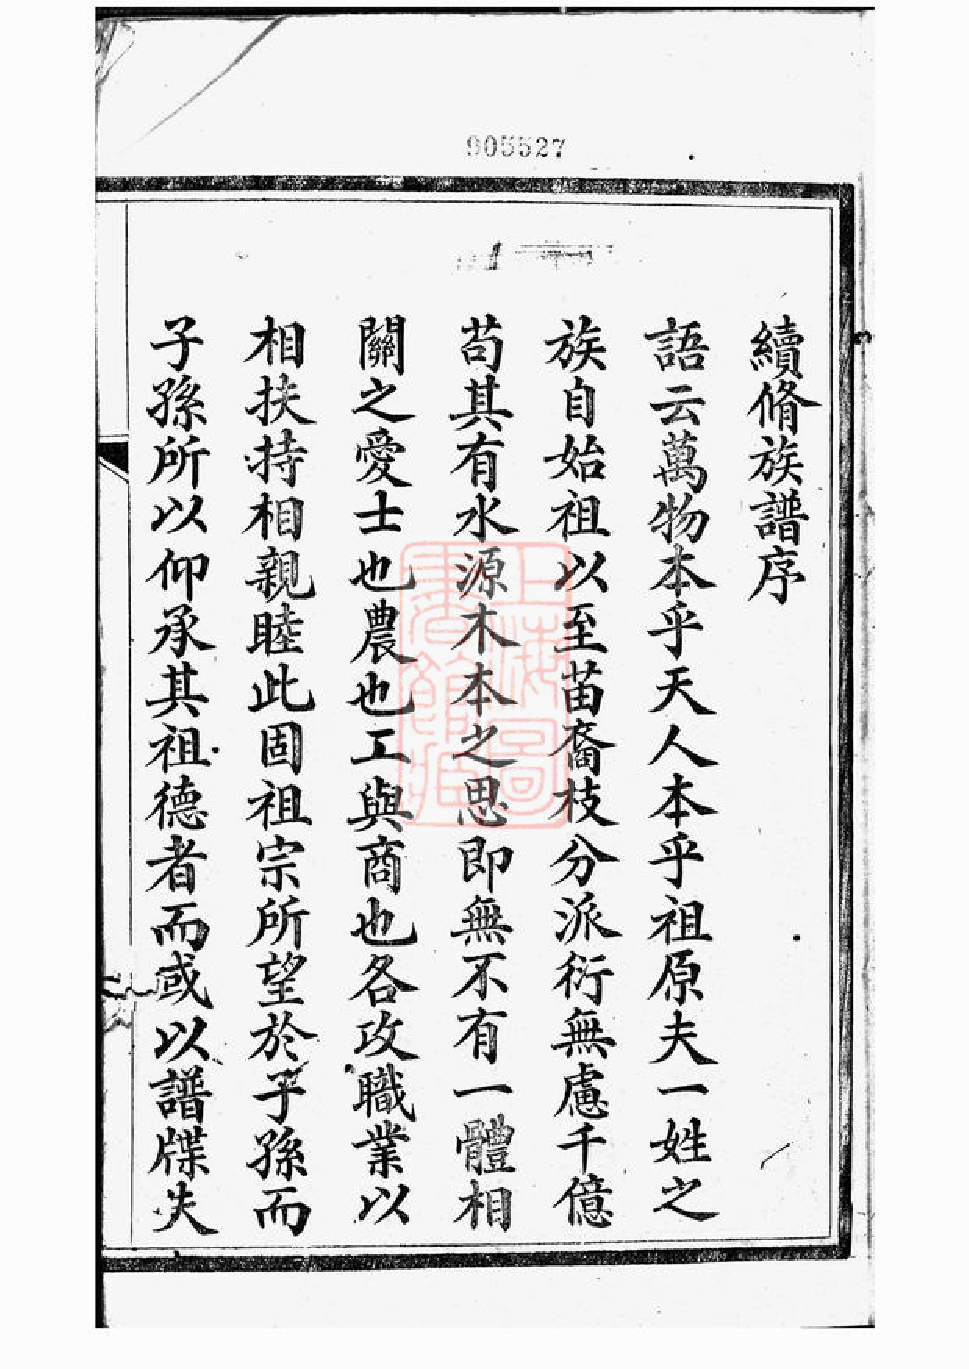 905527
續脩族譜序
語云萬物本乎天人本乎祖原夫一姓之
族自始祖以至苗裔枝分派衍無慮千億
苟其有水源木本之思即無不有一體相
關之愛士也農也工與商也各攻職業以
相扶持相親睦此固祖宗所望於子孫而
子孫所以仰承其祖德者而或以譜牒失
上海圖書館藏